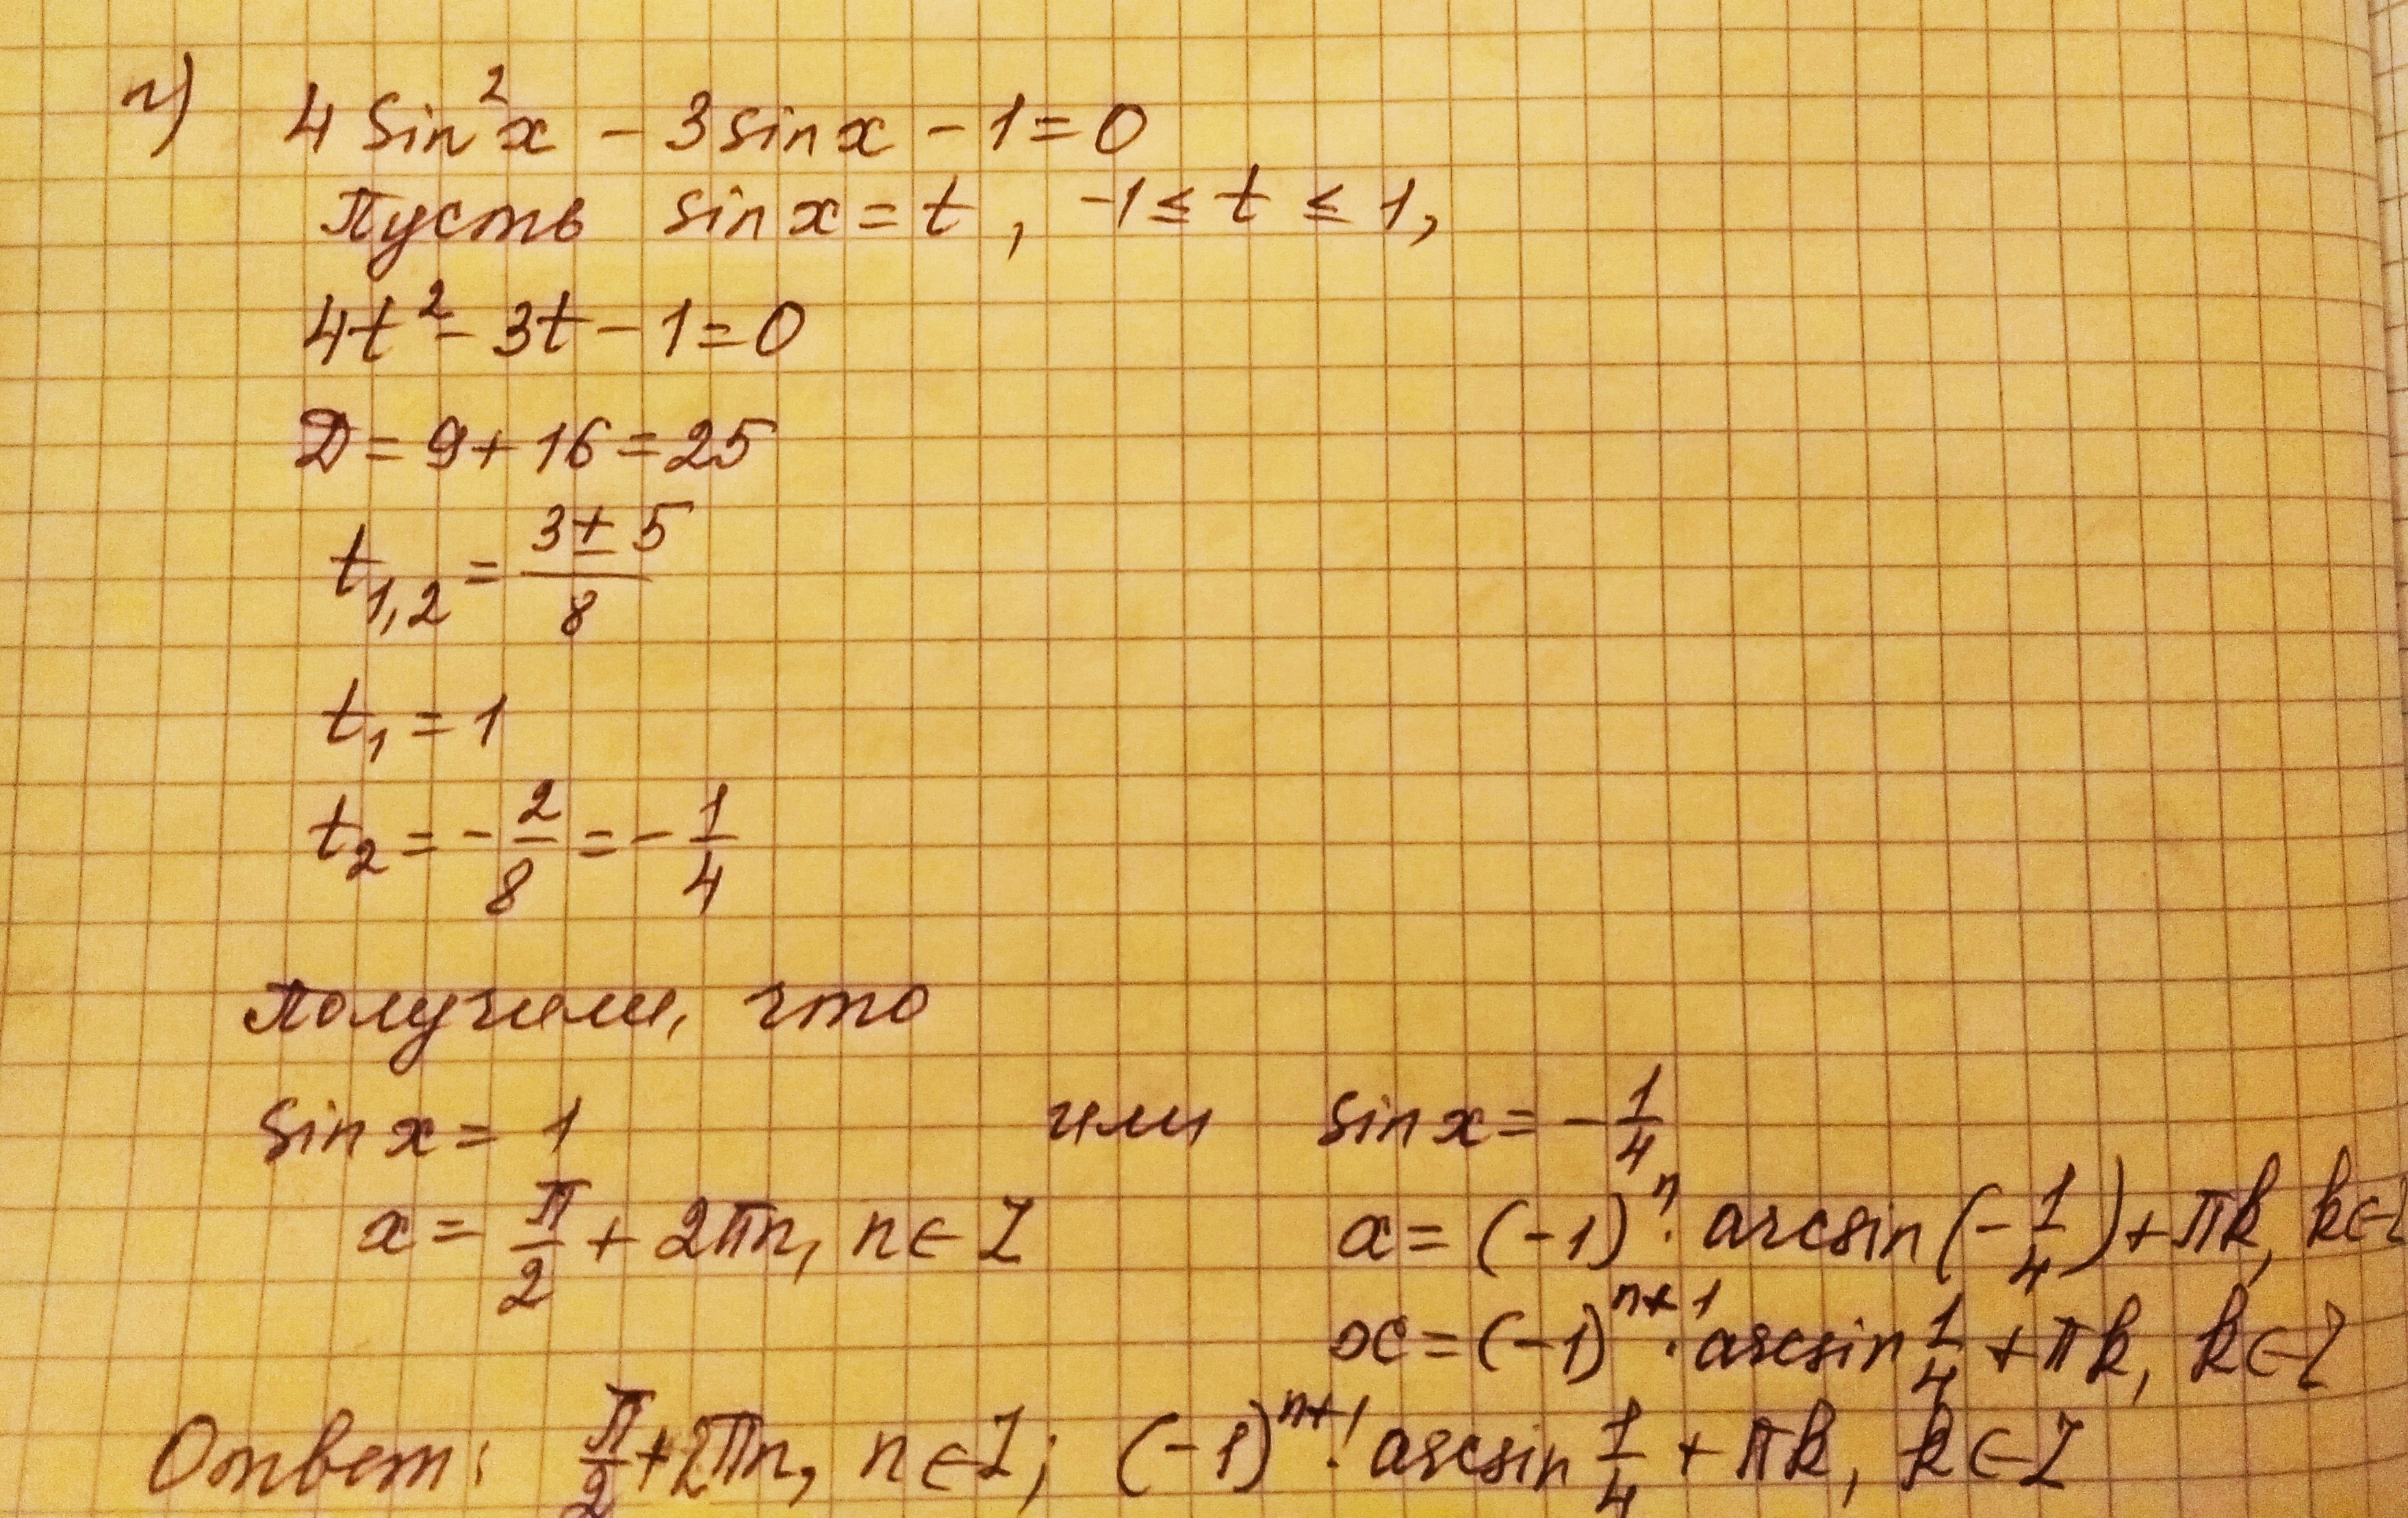 г) 4 sin²x - 3 sin x - 1 = 0
Пусть sin x = t, -1 ≤ t ≤ 1,
4t² - 3t - 1 = 0
D = 9 + 16 = 25
t₁,₂ = (3 ± 5)/8
t₁ = 1
t₂ = -2/8 = -1/4
Получим, что
sin x = 1 или sin x = -1/4
x = π/2 + 2πn, n ∈ Z x = (-1)ⁿ · arcsin(-1/4) + πk, k ∈ Z
x = (-1)ⁿ⁺¹ · arcsin 1/4 + πk, k ∈ Z
Ответ: π/2 + 2πn, n ∈ Z; (-1)ⁿ⁺¹ · arcsin 1/4 + πk, k ∈ Z